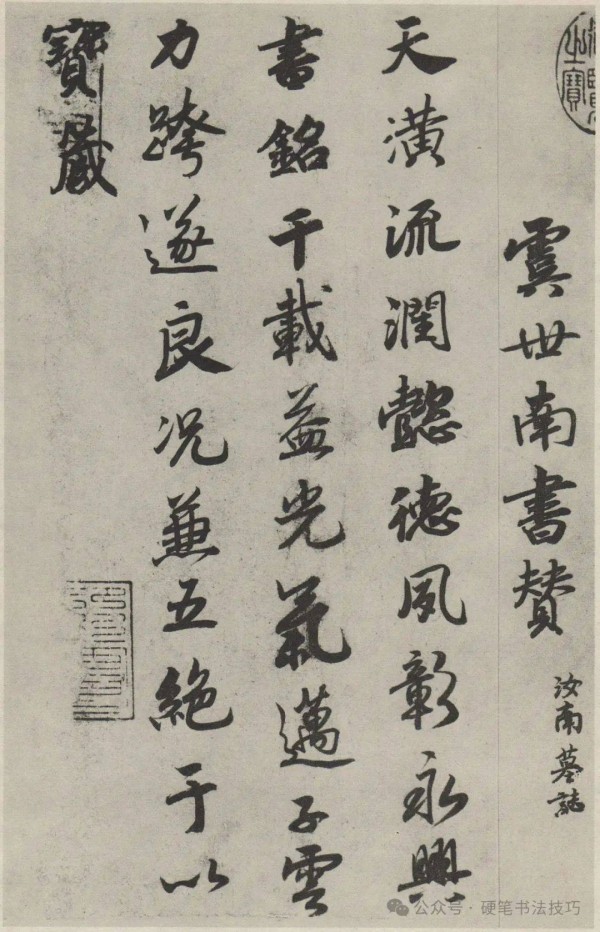 虞世南書贊 汝南墓誌
天潢流潤懿德夙彰永興
書銘千載益光氣邁子雲
力跨遂良況兼五絕于以
寶藏
公众号·硬笔书法技巧